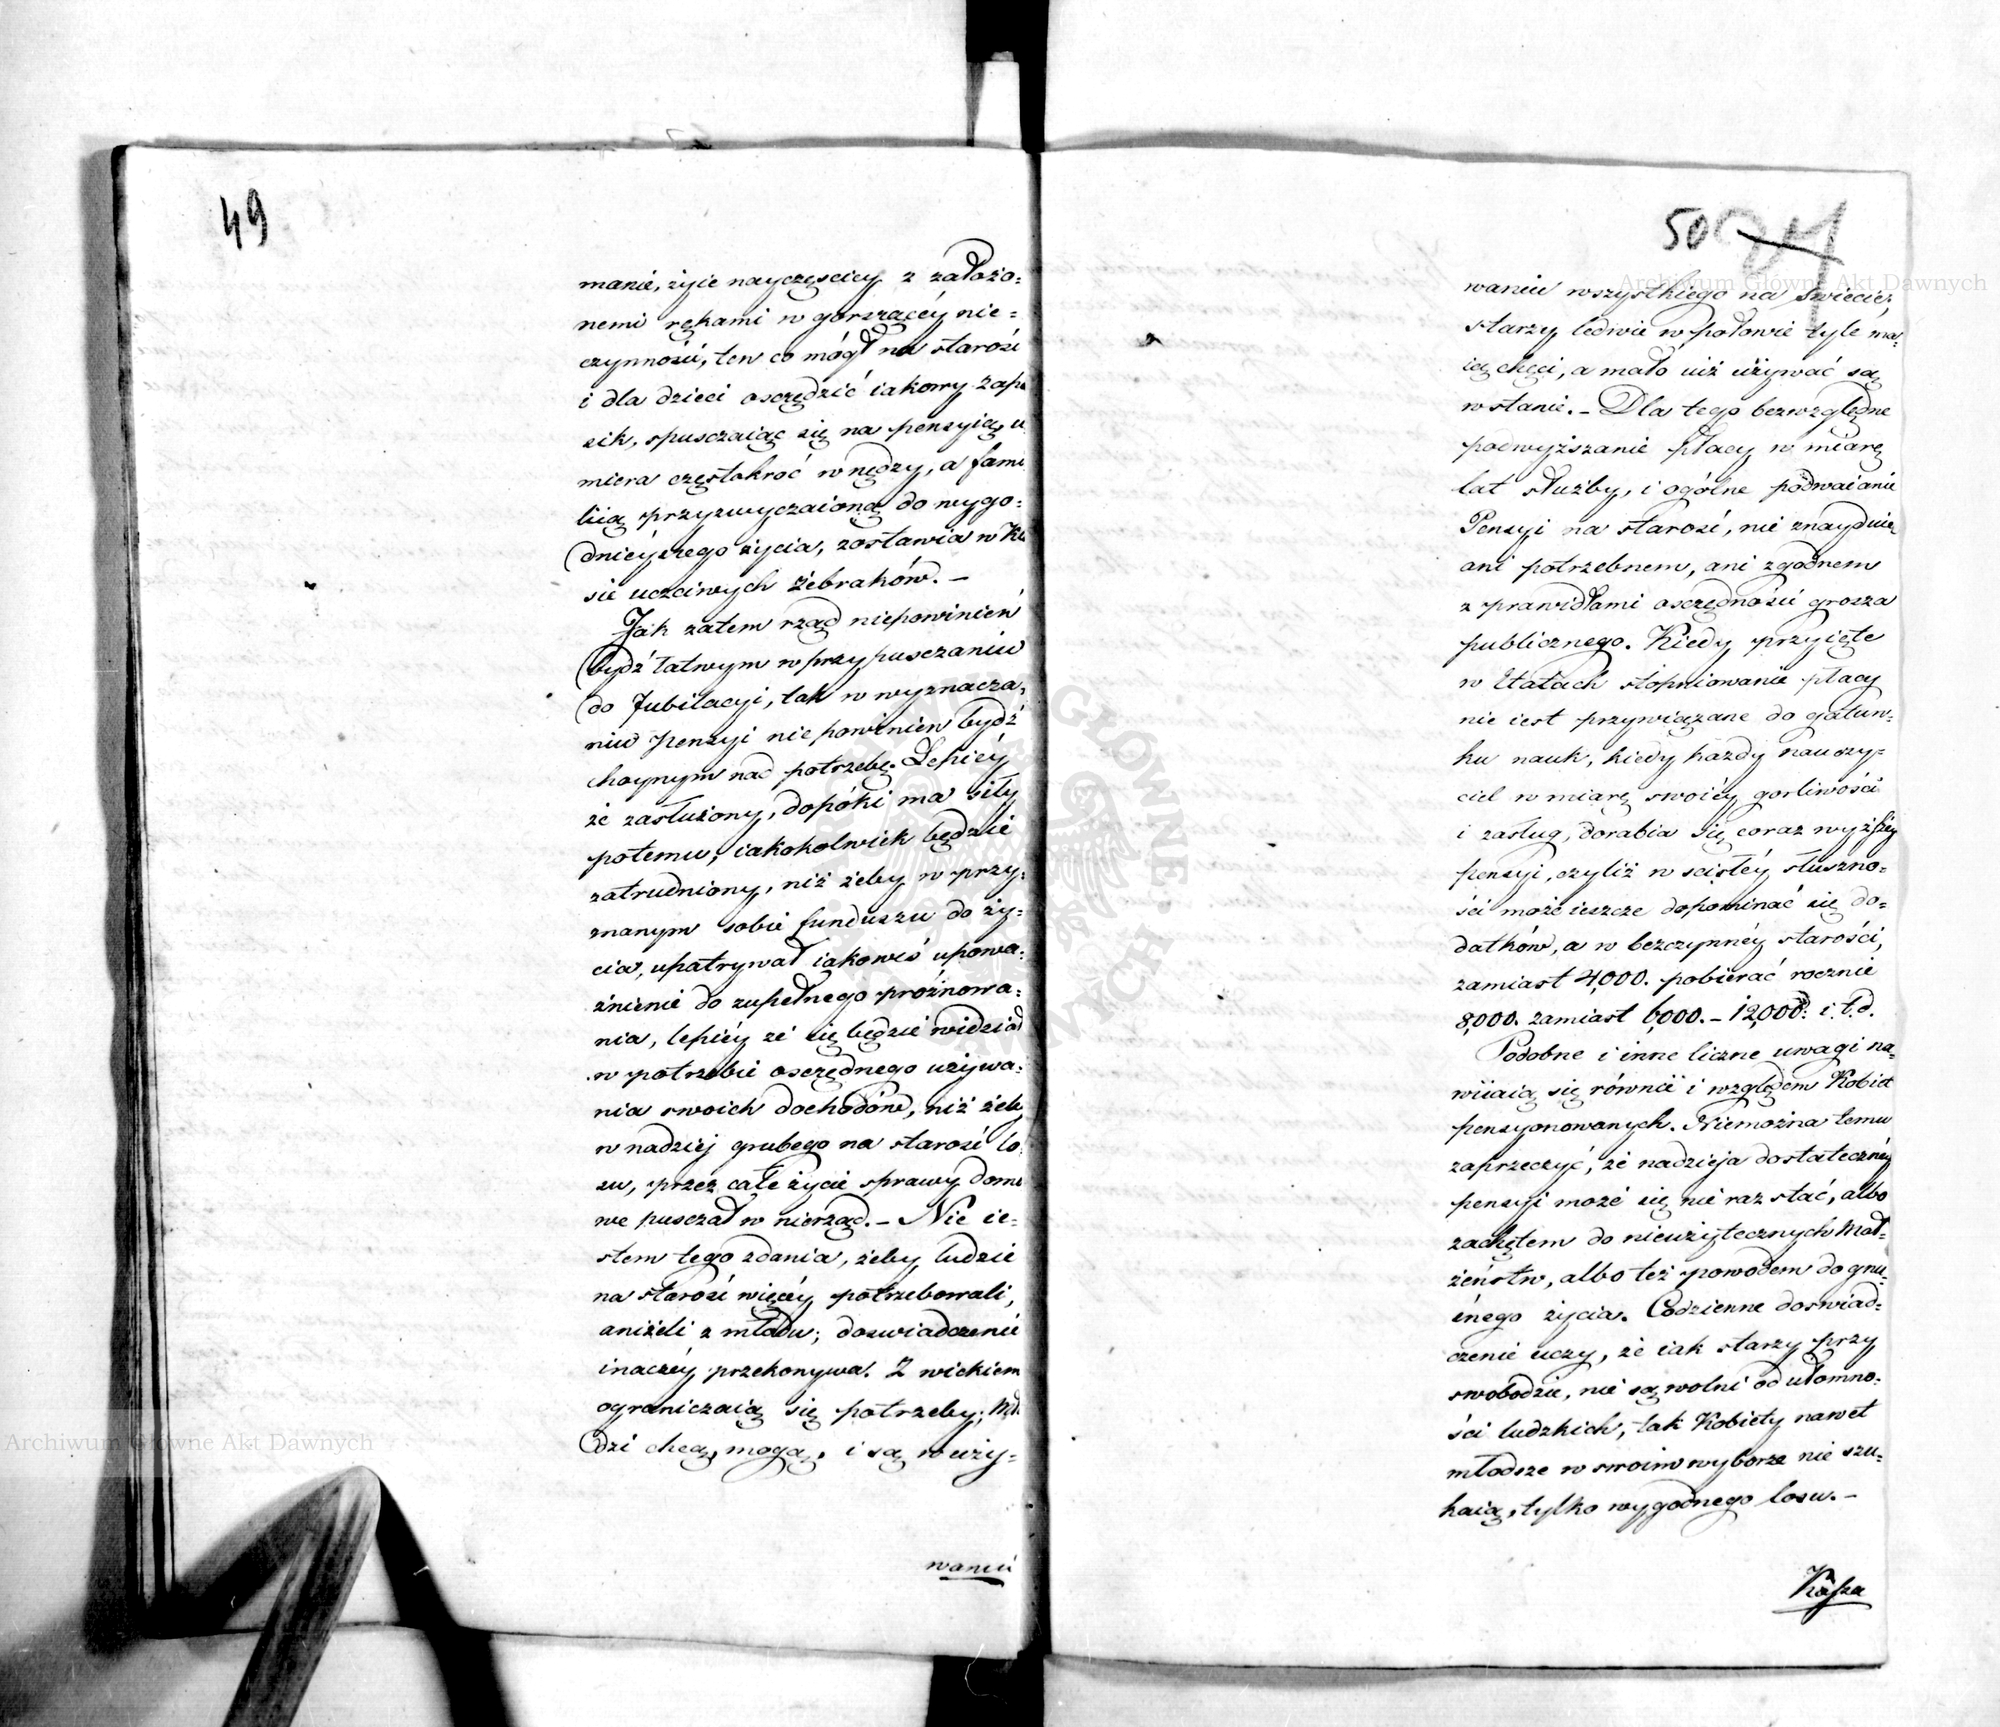 49
manie, żyie nayczęściey z założo=
nemi rękami w gorszącéy nie=
czynności, ten co mógł na starość
i dla dzieci oszczędzić iakowy zapa
sik, spusczaiąc się na pensyią, u
miera częstokroć w nędzy, a fami
lią przyzwyczaioną do wygo=
dnieyszego życia, zostawia w Kla
sie uczciwych żebraków. —
Jak zatem rząd niepowinien
bydź łatwym w przypusczaniu
do Jubilacyi, tak w wyznacza=
niu pensyi nie powinien bydź
hoynym nad potrzebę. Lepiéy
że zasłużony, dopóki ma siły
potemu, iakokolwiek będzie
zatrudniony, niż żeby w przy=
znanym sobie funduszu do ży=
cia, upatrywał iakoweś upowa=
żnienie do zupełnego próżnowa=
nia, lepiéy że się będzie widział
w potrzebie oszczędnego używa=
nia swoich dochodów, niż żeby
w nadziej grubego na starość lo
su, przez całe życie sprawy domo
we pusczał w nierząd. — Nie ie=
stem tego zdania, żeby ludzie
na starość więcéy potrzebowali,
aniżeli z młodu; doswiadczenie
inaczéy przekonywa. Z wiekiem
ograniczaią się potrzeby; Mło
dzi chcą, mogą, i są w uży=
waniu
50
waniu wszystkiego na świecie;
starzy ledwie w połowie tyle ma=
ią chęci, a mało iuż używać są
w stanie. — Dla tego bezwzględne
podwyższanie płacy w miarę
lat służby, i ogólne podwaianie
Pensyi na starość, nie znayduię
ani potrzebnem, ani zgodnem
z prawidłami oszczędności grosza
publicznego. Kiedy przyięte
w Etatach stopniowanie płacy
nie iest przywiązane do gatun=
ku nauk, kiedy każdy nauczy=
ciel w miarę swoiéy gorliwości
i zasług, dorabia się coraz wyższey
pensyi, czyliż w scisłéy słuszno=
ści może ieszcze dopominać się do=
datków, a w bezczynnéy starości,
zamiast 4,000. pobierać rocznie
8,000. zamiast 6,000. — 12,000. i.t.d.
Podobne i inne liczne uwagi na=
wiiaią się równie i względem Kobiet
pensyonowanych. Niemożna temu
zaprzeczyć, że nadzieja dostatecznéy
pensyi może się nie raz stać, albo
zachętem do nieużytecznych Mał=
żeństw, albo też powodem do gnu=
śnego życia. Codzienne doswiad=
czenie uczy, że iak starzy przy
swobodzie, nie są wolni od ułomno=
ści ludzkich, tak Kobiety nawet
młodsze w swoim wyborze nie szu=
kaią, tylko wygodnego losu. —
Kassa
Archiwum Główne Akt Dawnych
Archiwum Główne Akt Dawnych